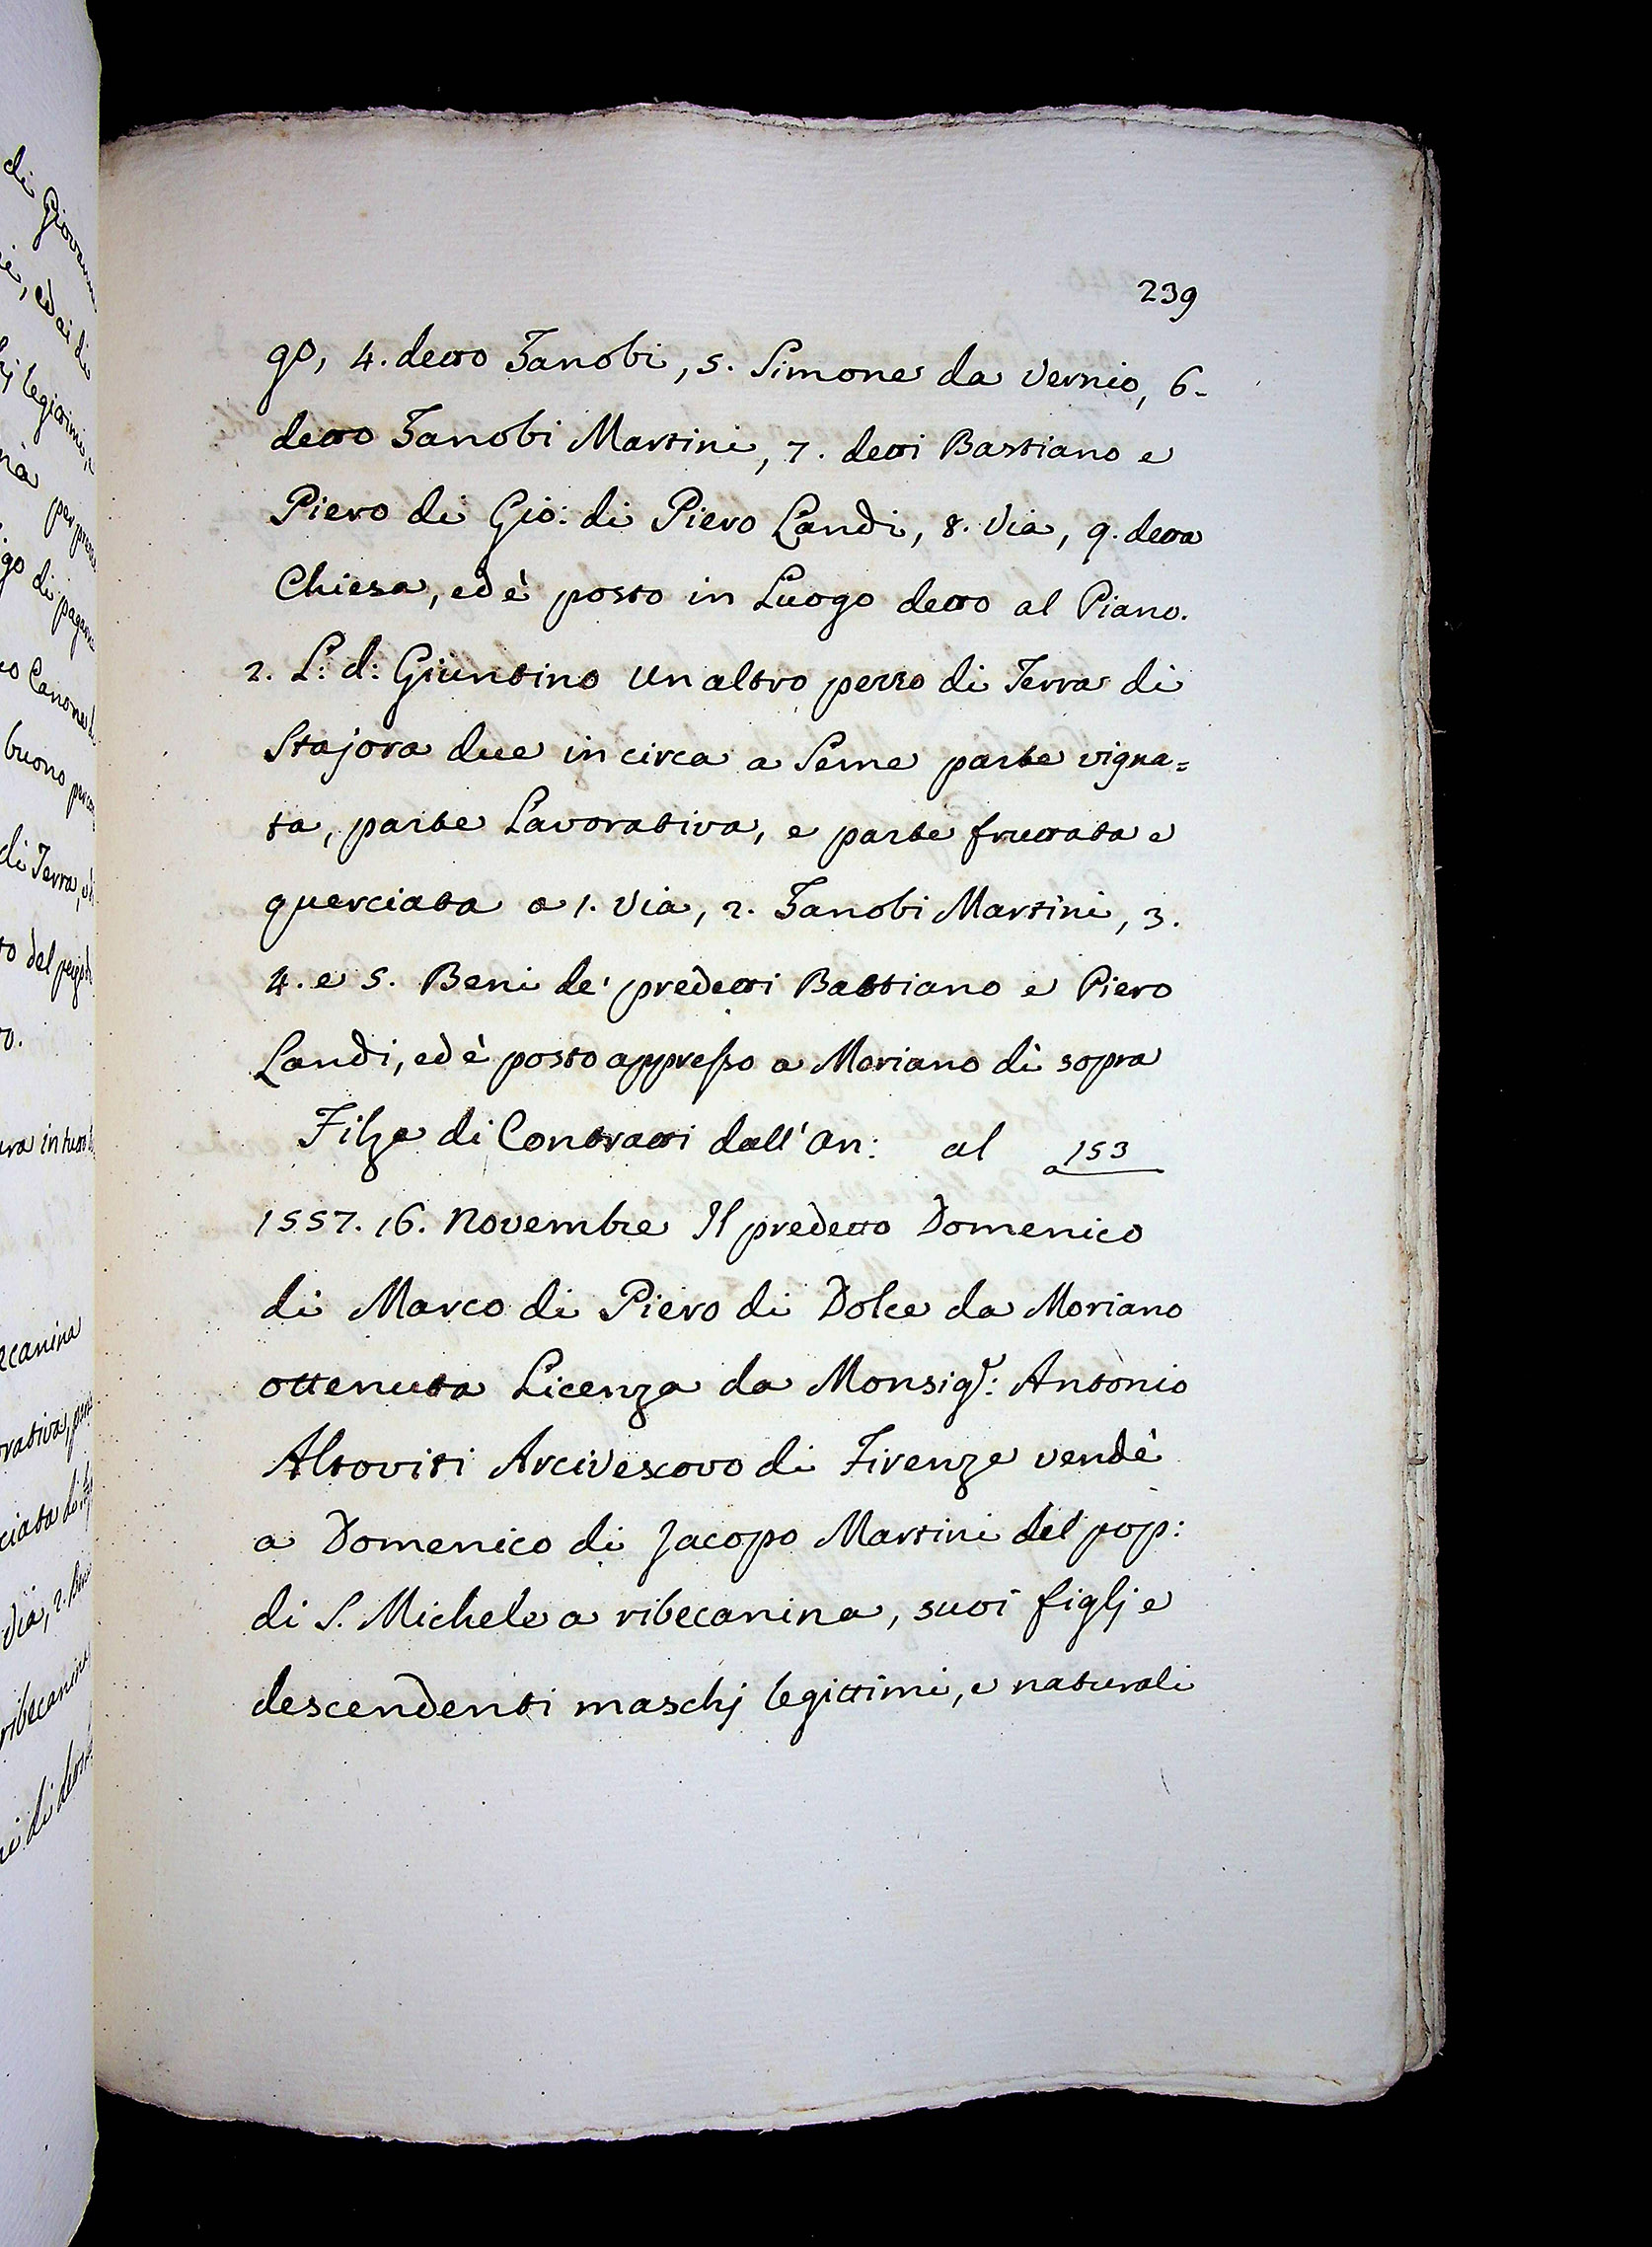 239
go, 4. detto Zanobi, 5. Simone da Vernio, 6.
detto Zanobi Martini, 7. detti Bastiano e
Piero di Gio: di Piero Landi, 8. Via, 9. detta
Chiesa, ed è posto in Luogo detto al Piano.
2. L: d: Giuntino un altro pezzo di Terra di
Stajora due in circa a Seme parte vigna=
ta, parte Lavorativa, e parte fruttata e
querciata a 1. Via, 2. Zanobi Martini, 3.
4. e 5. Beni de' predetti Bastiano e Piero
Landi, ed è posto appresso a Moriano di sopra
Filza di Contratti dall'an: al a 153
1557. 16. Novembre Il predetto Domenico
di Marco di Piero di Dolce da Moriano
ottenuta Licenza da Monsigr: Antonio
Altoviti Arcivescovo di Firenze vendè
a Domenico di Jacopo Martini del pop:
di S. Michele a ribecanina, suoi figlj e
descendenti maschj legittimi, e naturali